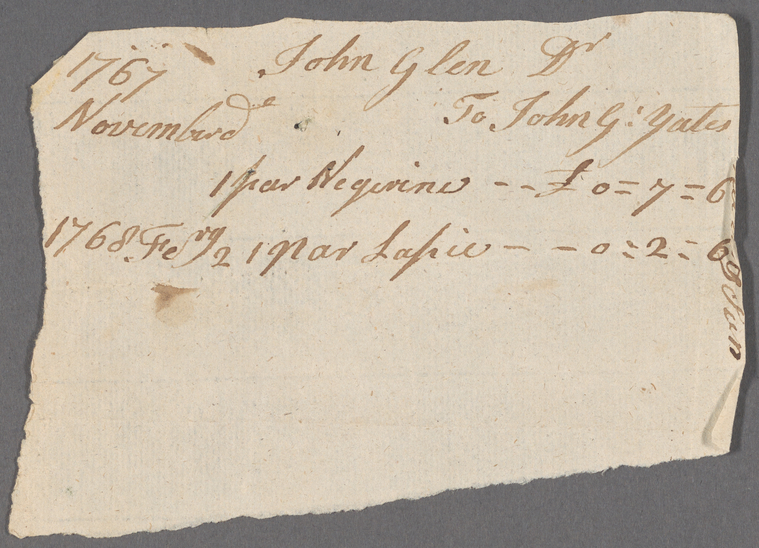 1767 John Glen Dr
Novimbrd To John G: Yates
1 par Negerine - - £ 0 = 7 = 6
1768 Febry 2 1 par Lapie - - 0 = 2 = 6